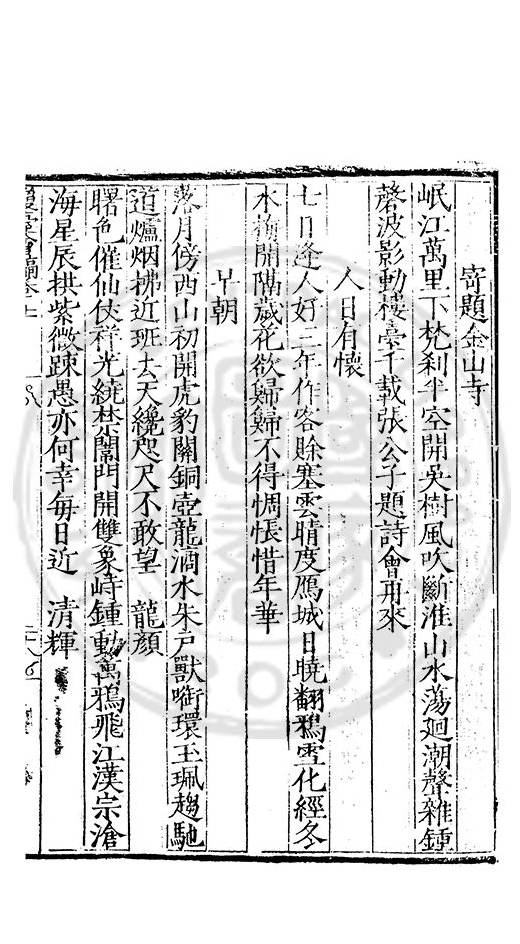 寄題金山寺
岷江萬里下梵刹半空開吳樹風吹斷淮山水蕩迴潮聲雜鍾
磬波影動樓臺千載張公子題詩會再來
人日有懷
七日逢人好三年作客賒塞雲晴度鴈城日曉翻鴉雪化經冬
木梅開隔歲花欲歸歸不得惆悵惜年華
早朝
落月傍西山初開虎豹關銅壺龍滴水朱戸獸啣環玉珮趨馳
道爐烟拂近班去天纔咫尺不敢望 龍顔
曙色催仙仗祥光繞禁闈門開雙象峙鍾動萬鴉飛江漢宗滄
海星辰拱紫微踈愚亦何幸每日近 清輝